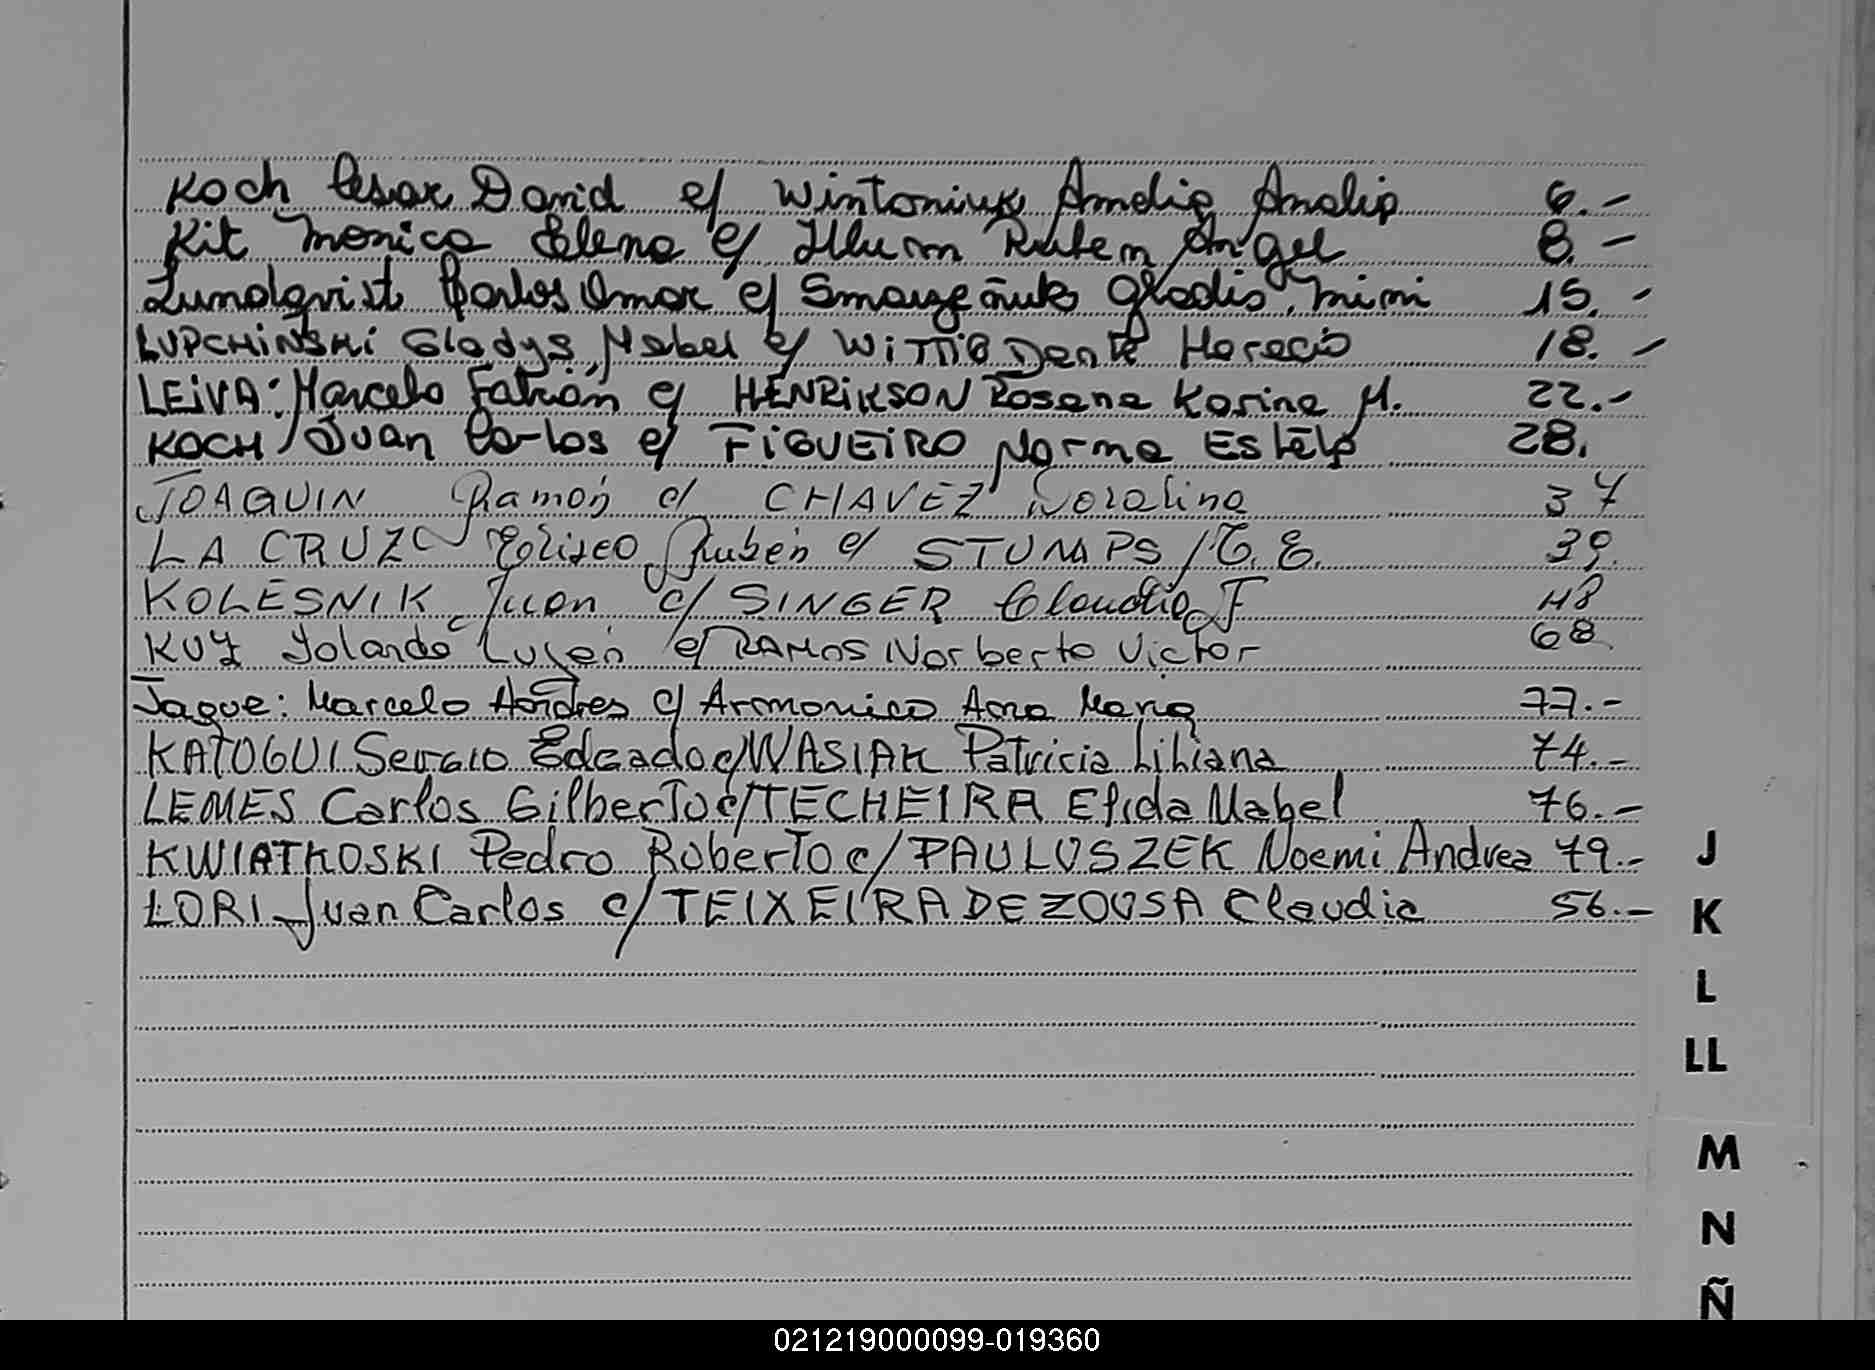 Koch Cesar David c/ Wintoniuk Amelia Analia 6.-
Kit Monica Elena c/ Illum Ruben Angel 8.-
Lundqvist Carlos Omar c/ Gladis Mimi 15.-
LUPCHINSKI Gladys Mabel c/ Horacio 18.-
LEIVA: Marcelo Fabián c/ HENRIKSON Rosana Karina M. 22.-
KOCH Juan Carlos c/ FIGUEIRO Norma Estela 28.
JOAQUIN Ramón c/ CHAVEZ 37
LA CRUZ Eliseo Rubén c/ STUMPS 39.
KOLESNIK Juan c/ SINGER Claudia F 48
KUZ Yolanda c/ RAMOS Norberto Victor 68
Jaque: Marcelo Andres c/ Armonico Ana Maria 77.-
KATOGUI Sergio Edgado c/ WASIAK Patricia Liliana 74.-
LEMES Carlos Gilberto c/ TECHEIRA Elida Mabel 76.-
KWIATKOSKI Pedro Roberto c/ PAULUSZEK Noemi Andrea 79.-
LORI Juan Carlos c/ TEIXEIRA DE ZOUSA Claudia 56.-
J
K
L
LL
M
N
Ñ
021219000099-019360